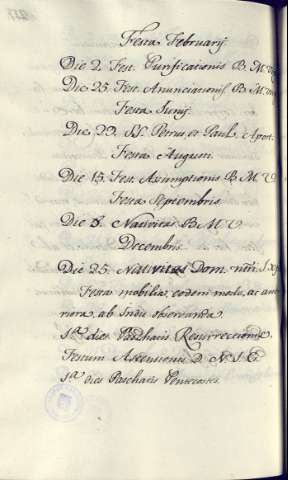 Festa Februarij
Die 2. Fest. Purificationis B. M. Vg
Die 25. Fest. Anunciationis B. M. Vg
Festa Junij.
Die 29. SS. Petrus et Paul. Apost.
Festa Augusti
Die 15. Fest. Asumptionis B M V
Festa Septembris
Die 8. Nativitas B M V
Decembris
Die 25. Nativitas Dom. ntri
Festa mobilia, eodem modo, ac ante
riora, ab Indis observanda.
1.ª dies Paschalis Resurrectionis
Festum Ascensionis D. N. I. C
1.ª dies Paschalis Pentecostes